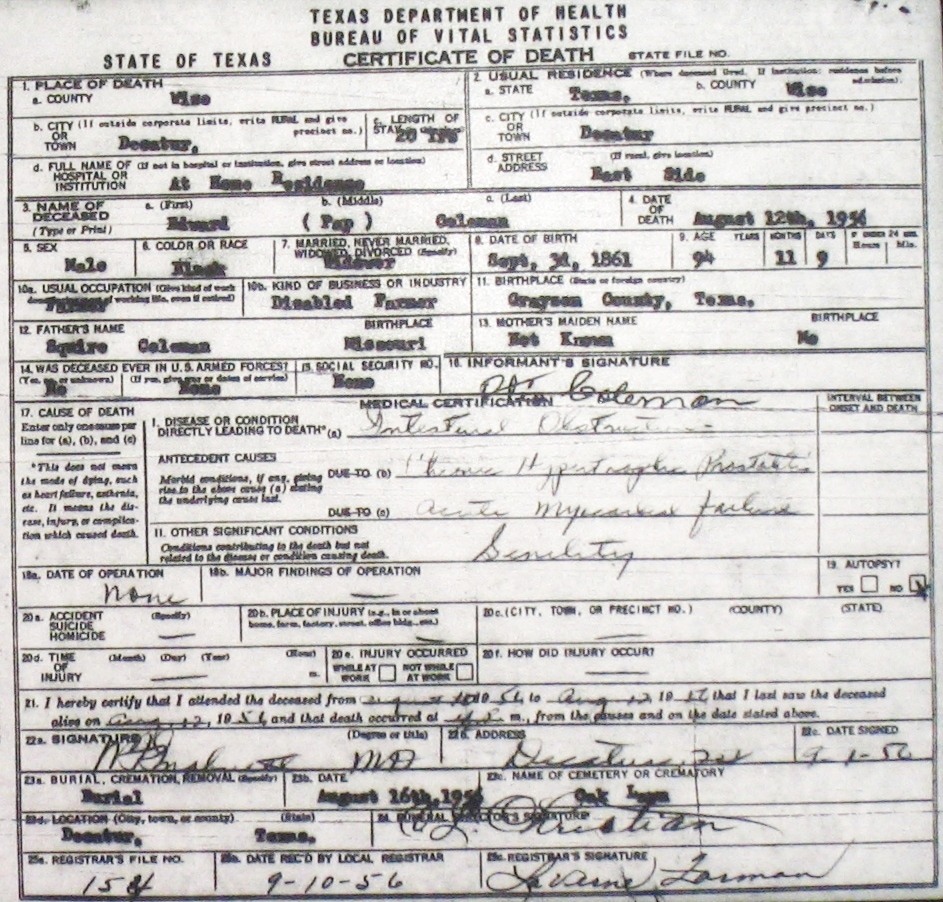 TEXAS DEPARTMENT OF HEALTH
BUREAU OF VITAL STATISTICS
STATE OF TEXAS CERTIFICATE OF DEATH STATE FILE NO.
1. PLACE OF DEATH
a. COUNTY Wise
2. USUAL RESIDENCE (Where deceased lived. If institution: residence before admission).
a. STATE Texas, b. COUNTY Wise
b. CITY (If outside corporate limits, write RURAL and give precinct no.)
OR
TOWN Decatur,
c. LENGTH OF
STAY 20 Yrs
c. CITY (If outside corporate limits, write RURAL and give precinct no.)
OR
TOWN Decatur
d. FULL NAME OF (If not in hospital or institution, give street address or location)
HOSPITAL OR
INSTITUTION At Home Residence
d. STREET (If rural, give location)
ADDRESS East Side
3. NAME OF
DECEASED
(Type or Print)
a. (First) b. (Middle) c. (Last)
Edward ( Pap ) Coleman
4. DATE
OF
DEATH August 12th, 1956
5. SEX
Male
6. COLOR OR RACE
Black
7. MARRIED, NEVER MARRIED,
WIDOWED, DIVORCED (Specify)
Widower
8. DATE OF BIRTH
Sept, 3d, 1861
9. AGE YEARS MONTHS DAYS IF UNDER 24 HRS.
Hours Min.
94 11 9
10a. USUAL OCCUPATION (Give kind of work
done of working life, even if retired)
Farmer
10b. KIND OF BUSINESS OR INDUSTRY
Disabled Farmer
11. BIRTHPLACE (State or foreign country)
Grayson County, Texas.
12. FATHER'S NAME BIRTHPLACE
Squire Coleman Missouri
13. MOTHER'S MAIDEN NAME BIRTHPLACE
Not Known No
14. WAS DECEASED EVER IN U.S. ARMED FORCES?
(Yes, no, or unknown) (If yes, give war or dates of service)
No None
15. SOCIAL SECURITY NO.
None
16. INFORMANT'S SIGNATURE
Coleman
17. CAUSE OF DEATH
Enter only one cause per
line for (a), (b), and (c)
*This does not mean
the mode of dying, such
as heart failure, asthenia,
etc. It means the dis-
ease, injury, or complica-
tion which caused death.
MEDICAL CERTIFICATION
INTERVAL BETWEEN
ONSET AND DEATH
I. DISEASE OR CONDITION
DIRECTLY LEADING TO DEATH* (a) Intestinal Obstruction
ANTECEDENT CAUSES
Morbid conditions, if any, giving
rise to the above cause (a) stating
the underlying cause last.
DUE TO (b) Chronic Hypertrophic Prostatitis
DUE TO (c) Acute Myocardial failure
II. OTHER SIGNIFICANT CONDITIONS
Conditions contributing to the death but not
related to the disease or condition causing death.
Senility
18a. DATE OF OPERATION
None
18b. MAJOR FINDINGS OF OPERATION
19. AUTOPSY?
YES NO
20a. ACCIDENT (Specify)
SUICIDE
HOMICIDE
20b. PLACE OF INJURY (e.g., in or about
home, farm, factory, street, office bldg., etc.)
20c. (CITY, TOWN, OR PRECINCT NO.) (COUNTY) (STATE)
20d. TIME (Month) (Day) (Year) (Hour)
OF
INJURY m.
20e. INJURY OCCURRED
WHILE AT WORK NOT WHILE AT WORK
20f. HOW DID INJURY OCCUR?
21. I hereby certify that I attended the deceased from August 10 1956, to Aug 12, 1956 that I last saw the deceased
alive on Aug 12, 1956 and that death occurred at m., from the causes and on the date stated above.
22a. SIGNATURE (Degree or title)
MD
22b. ADDRESS
Decatur, Tex
22c. DATE SIGNED
9-1-56
23a. BURIAL, CREMATION, REMOVAL (Specify)
Burial
23b. DATE
August 16th, 1956
23c. NAME OF CEMETERY OR CREMATORY
Oak Lawn
23d. LOCATION (City, town, or county) (State)
Decatur, Texas.
24. FUNERAL DIRECTOR'S SIGNATURE
Christian
25a. REGISTRAR'S FILE NO.
154
25b. DATE REC'D BY LOCAL REGISTRAR
9-10-56
25c. REGISTRAR'S SIGNATURE
LaVerne Forman